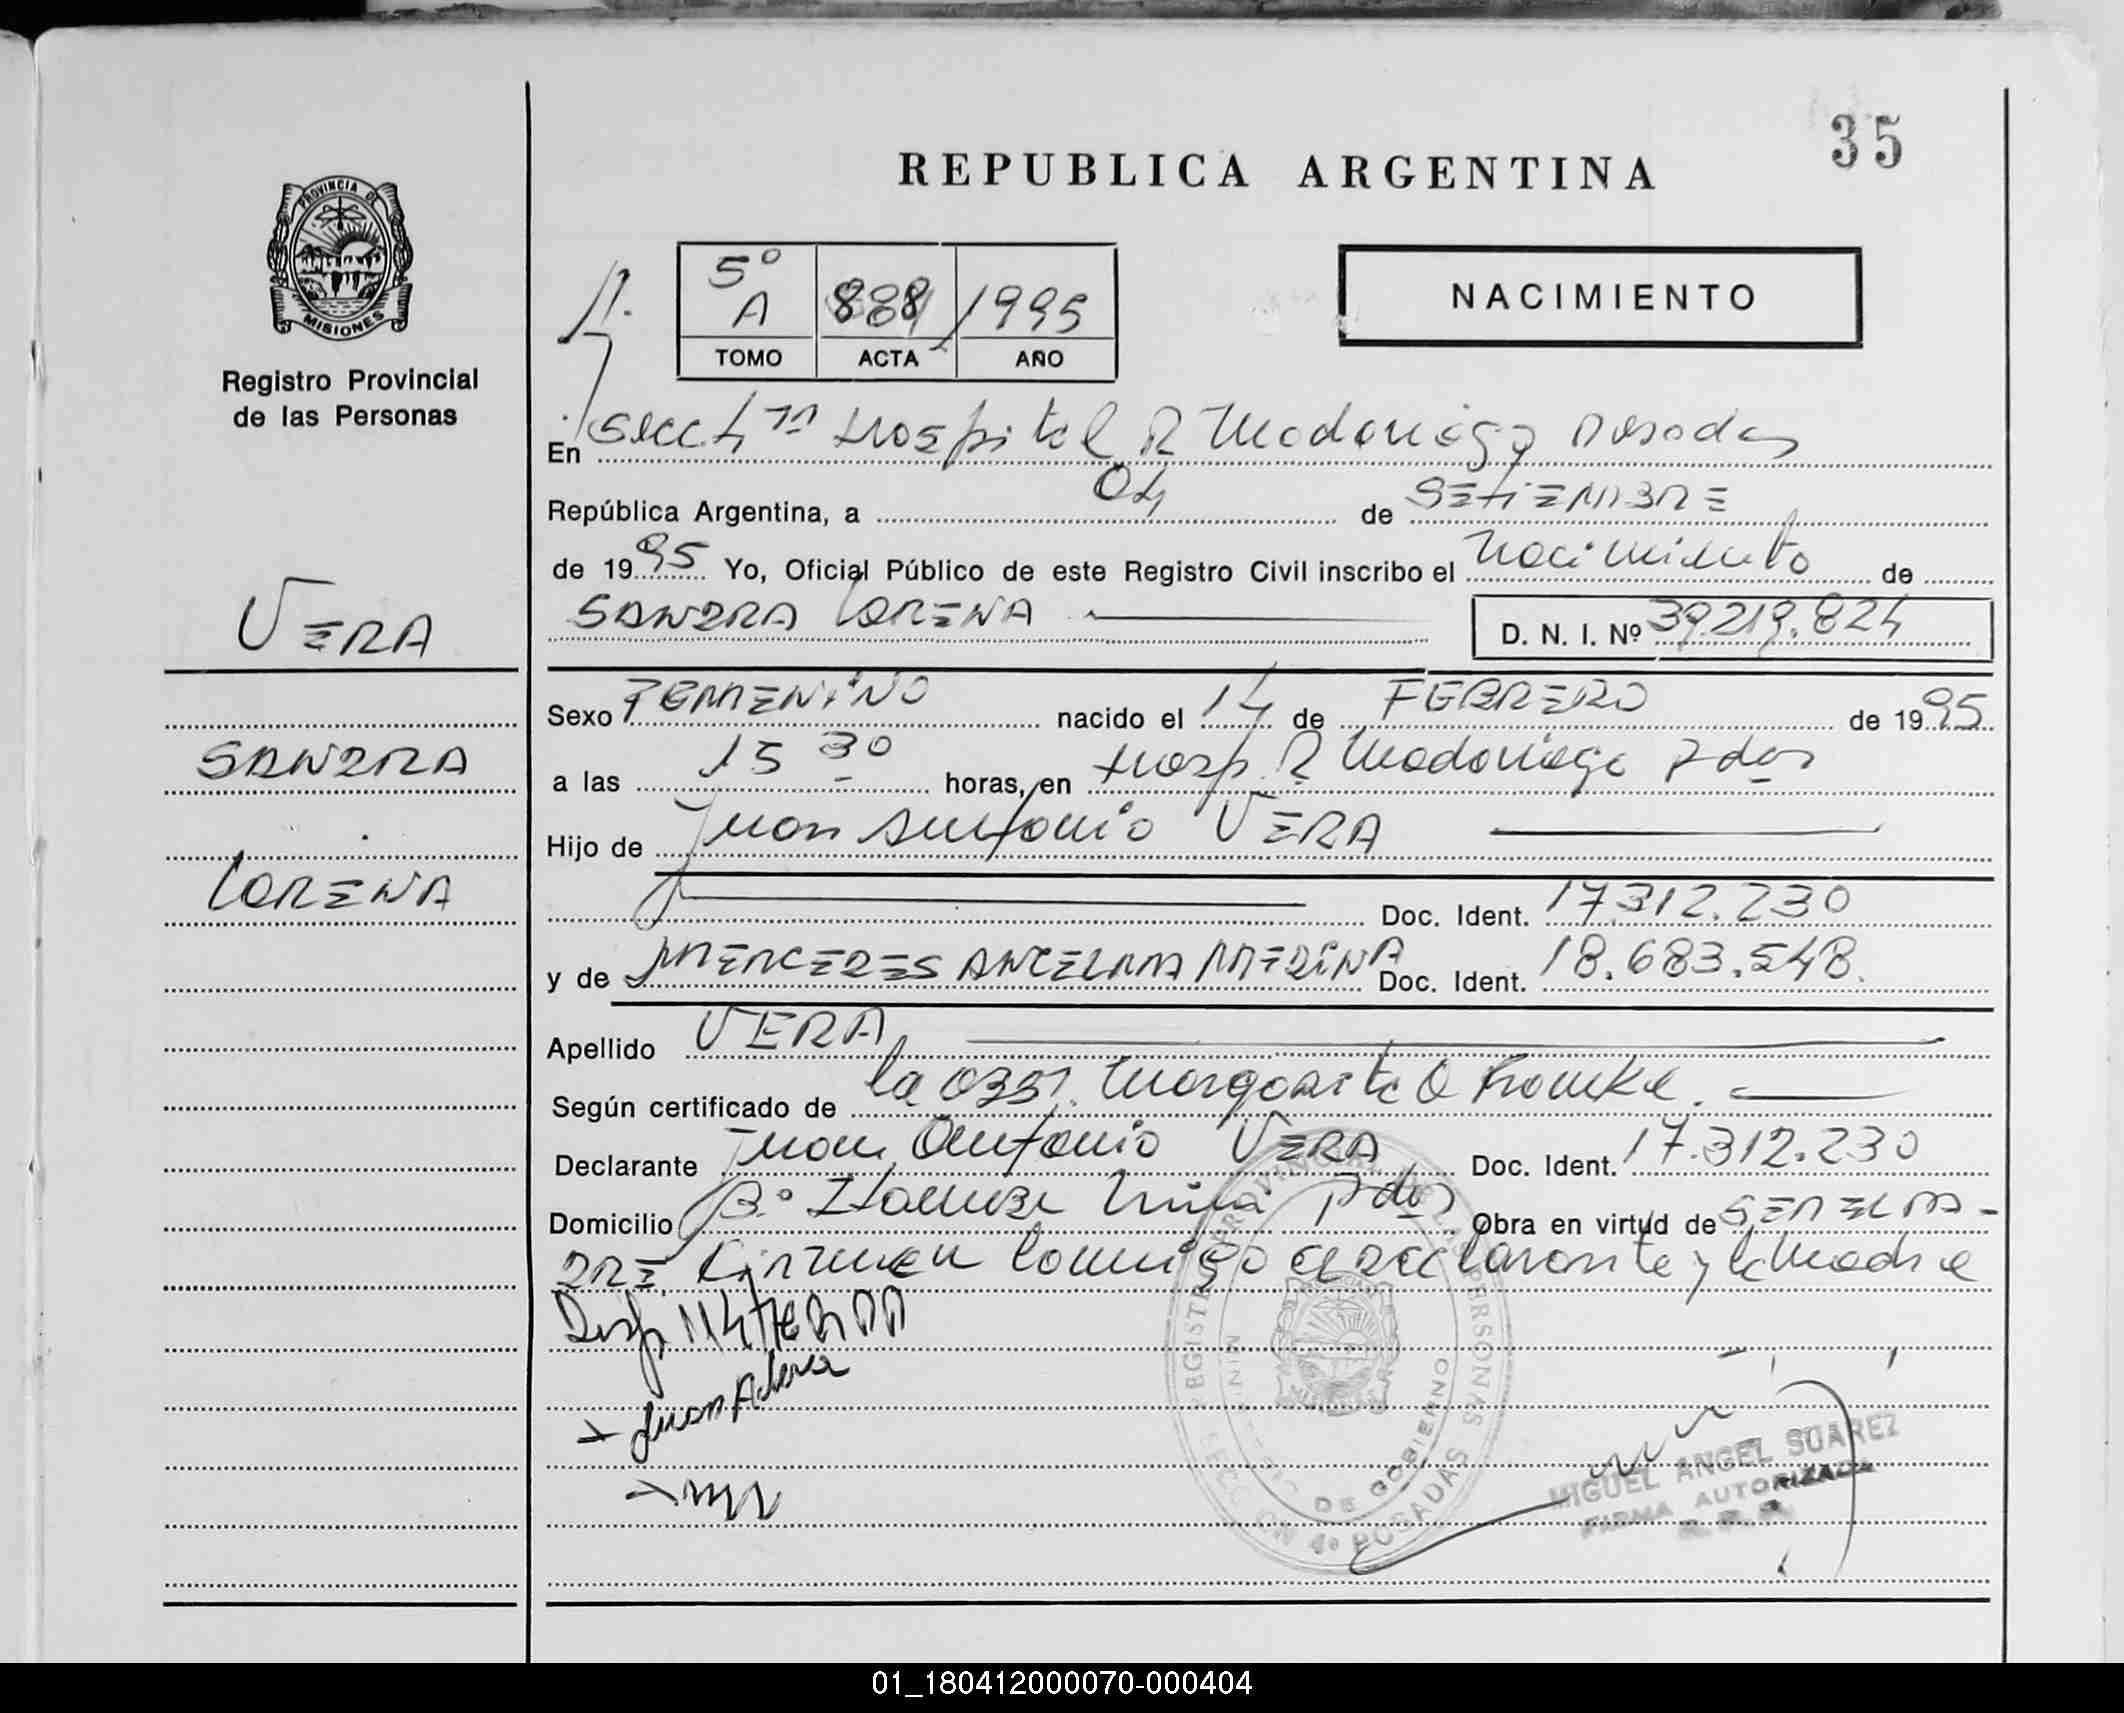 35
REPUBLICA ARGENTINA
PROVINCIA DE MISIONES
Registro Provincial
de las Personas
5º A 888 1995
TOMO ACTA AÑO
NACIMIENTO
En Secc. 4ª Hospital R Madariaga Posadas
República Argentina, a 04 de SETIEMBRE
de 1995 Yo, Oficial Público de este Registro Civil inscribo el Nacimiento de
SANDRA LORENA
D. N. I. Nº 39.219.824
VERA
SANDRA
LORENA
Sexo FEMENINO nacido el 14 de FEBRERO de 1995
a las 15 30 horas, en Hosp. R Madariaga Pdas
Hijo de Juan Antonio VERA
Doc. Ident. 17.312.230
y de MERCEDES ANCELMA MEDINA Doc. Ident. 18.683.548.
Apellido VERA
Según certificado de la Obst. Margarita
Declarante Juan Antonio VERA Doc. Ident. 17.312.230
Domicilio Bº Pdas Obra en virtud de SER EL PA-
DRE Firman Conmigo el declarante y la Madre
REGISTRO PROVINCIAL DE LAS PERSONAS
MINISTERIO DE GOBIERNO
SECCION 4º POSADAS
MIGUEL ANGEL SUAREZ
FIRMA AUTORIZADA
R. P. P.
01_180412000070-000404